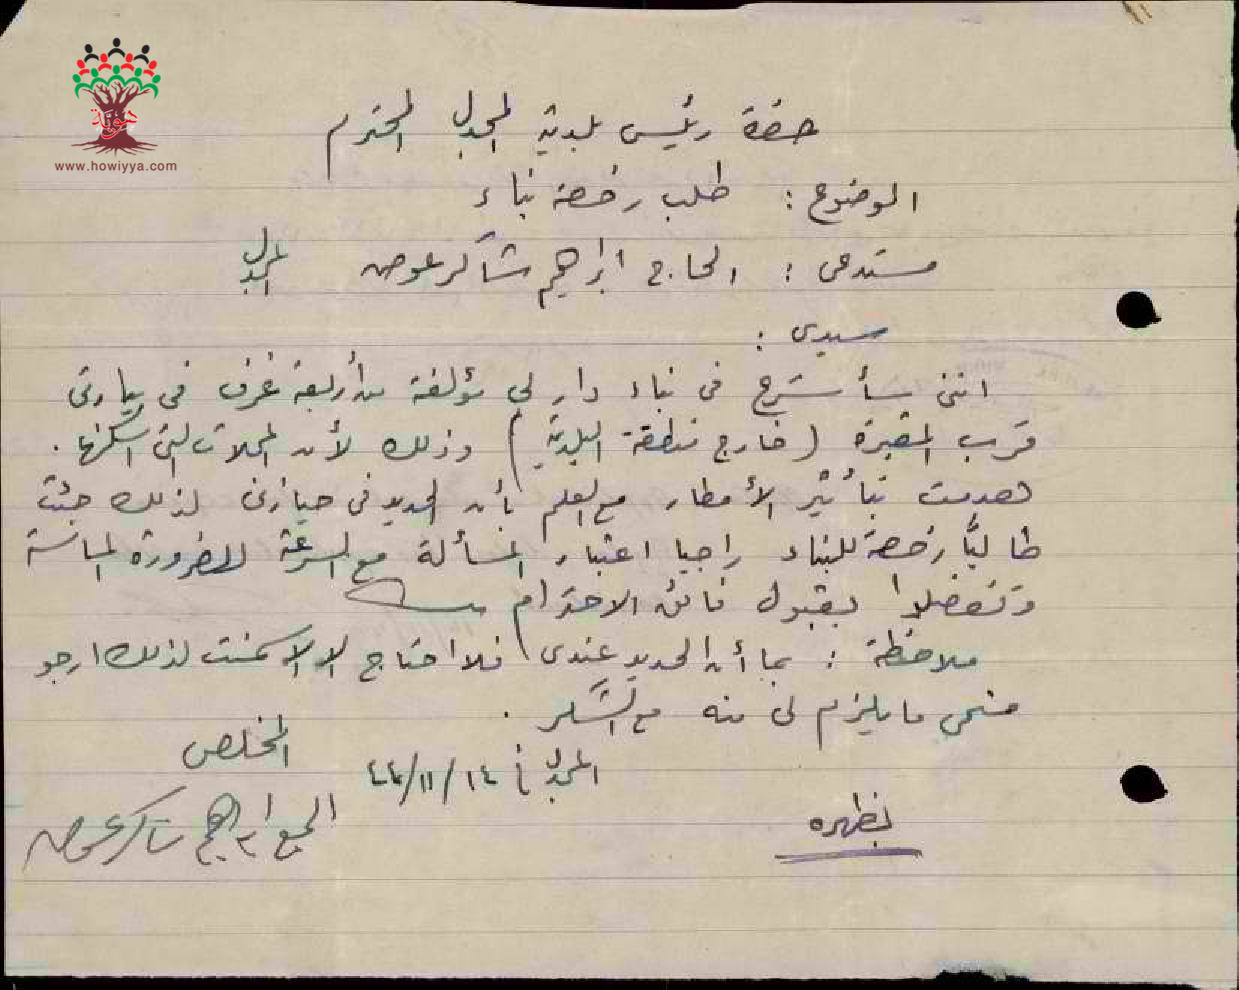 هوية
www.howiyya.com
حضرة رئيس بلدية المجدل المحترم
الموضوع : طلب رخصة بناء
مستدعي : الحاج ابراهيم شاكر عوض المجدل
سيدي :
انني سأشرع في بناء دار لي مؤلفة من أربعة غرف في بيارتي
قرب المقبرة ( خارج منطقة البلدية ) وذلك لأن المحلات التي اسكنها .
هدمت بتأثير الأمطار مع العلم بأن الحديد في حيازتي لذلك جئت
طالبًا رخصة للبناء راجيا اعتبار المسألة مع السرعة للضرورة الماسة
وتفضلوا بقبول فائق الاحترام
ملاحظة : بما أن الحديد عندي فلا احتاج الا الاسمنت لذلك ارجو
منحي ما يلزم لي منه مع الشكر .
المخلص
المجدل في ١٤/١١/٤٤
الحاج ابراهيم شاكر عوض
بظهره